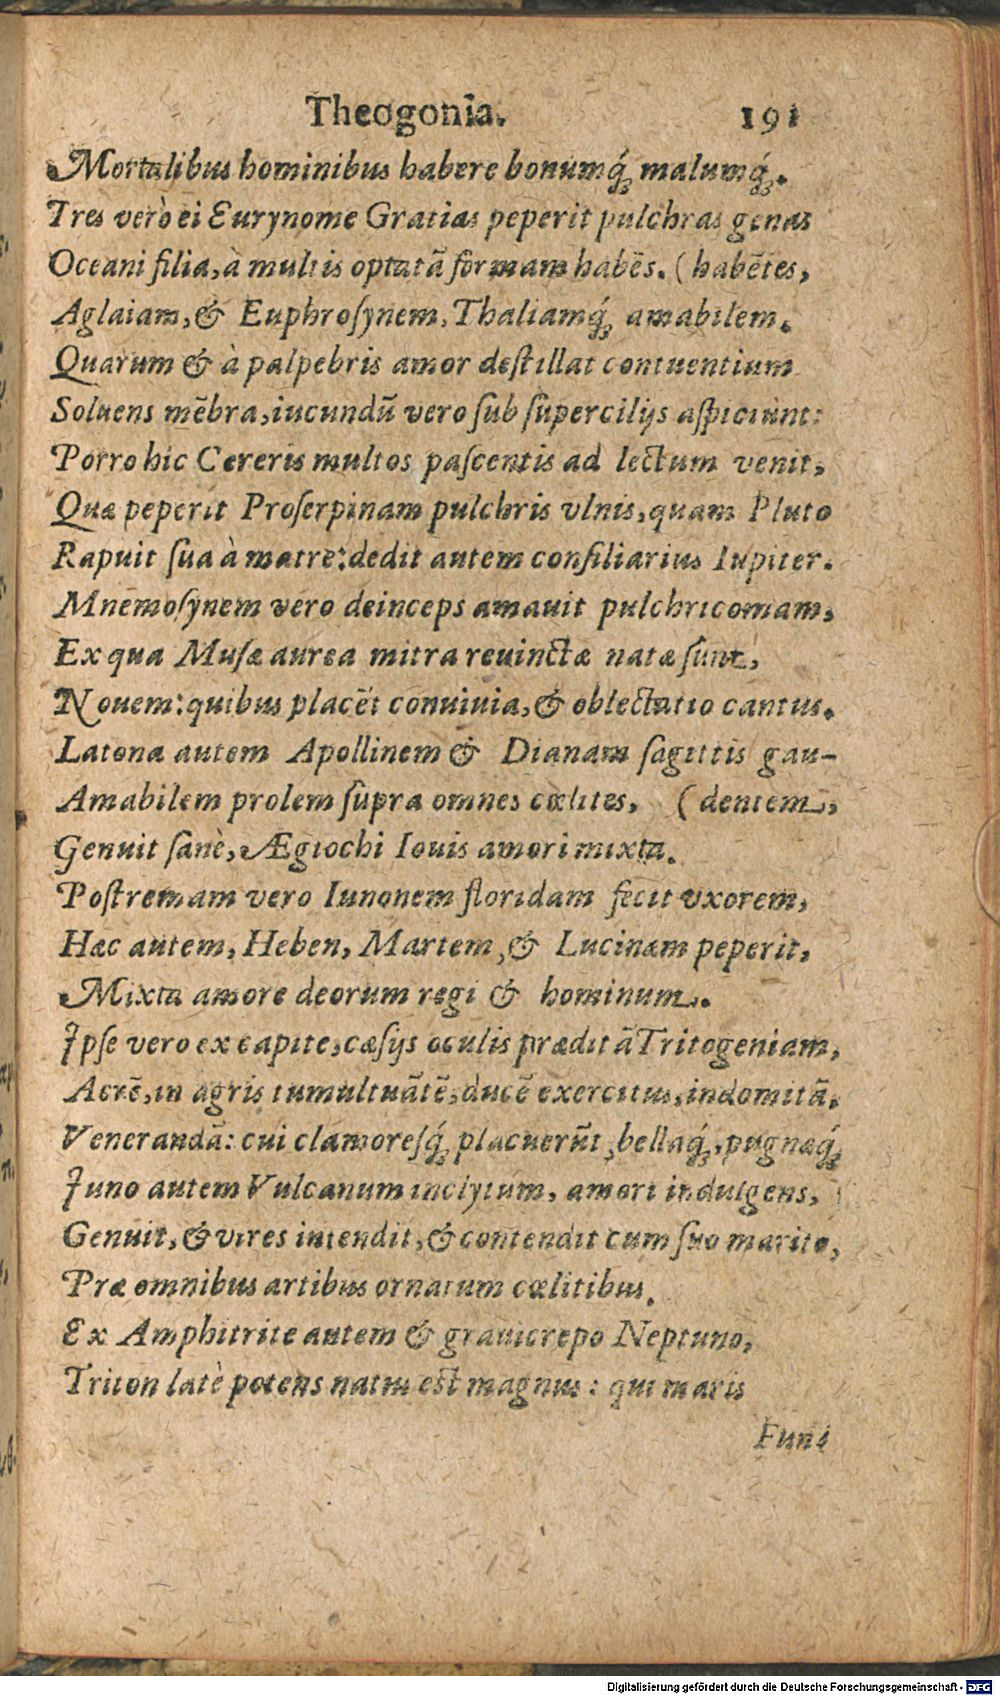 Theogonia. 191
Mortalibus hominibus habere bonumq́; malumq́;.
Tres verò ei Eurynome Gratias peperit pulchras genas
Oceani filia, à multis optatā formam habēs. (habētes,
Aglaiam, & Euphroſynem, Thaliamq́; amabilem.
Quarum & à palpebris amor deſtillat contuentium
Soluens mēbra, iucundū vero ſub ſupercilijs aſpiciunt:
Porro hic Cereris multos paſcentis ad lectum venit,
Quæ peperit Proſerpinam pulchris vlnis, quam Pluto
Rapuit ſua à matre: dedit autem conſiliarius Iupiter.
Mnemoſynem vero deinceps amauit pulchricomam,
Ex qua Muſæ aurea mitra reuinctæ natæ ſunt,
Nouem: quibus placēt conuiuia, & oblectatio cantus.
Latona autem Apollinem & Dianam ſagittis gau-
Amabilem prolem ſupra omnes cœlites, (dentem,
Genuit ſanè, Ægiochi Iouis amori mixta.
Poſtremam vero Iunonem floridam fecit vxorem,
Hæc autem, Heben, Martem, & Lucinam peperit,
Mixta amore deorum regi & hominum.
Ipſe vero ex capite, cæſijs oculis præditā Tritogeniam,
Acrē, in agris tumultuātē, ducē exercitus, indomitā.
Venerandā: cui clamoreſq́; placuerūt, bellaq́;, pugnæq́;
Juno autem Vulcanum inclytum, amori indulgens,
Genuit, & vires intendit, & contendit cum ſuo marito,
Præ omnibus artibus ornatum cœlitibus.
Ex Amphitrite autem & grauicrepo Neptuno,
Triton latè potens natus eſt magnus: qui maris
Digitalisierung gefördert durch die Deutsche Forschungsgemeinschaft - DFG